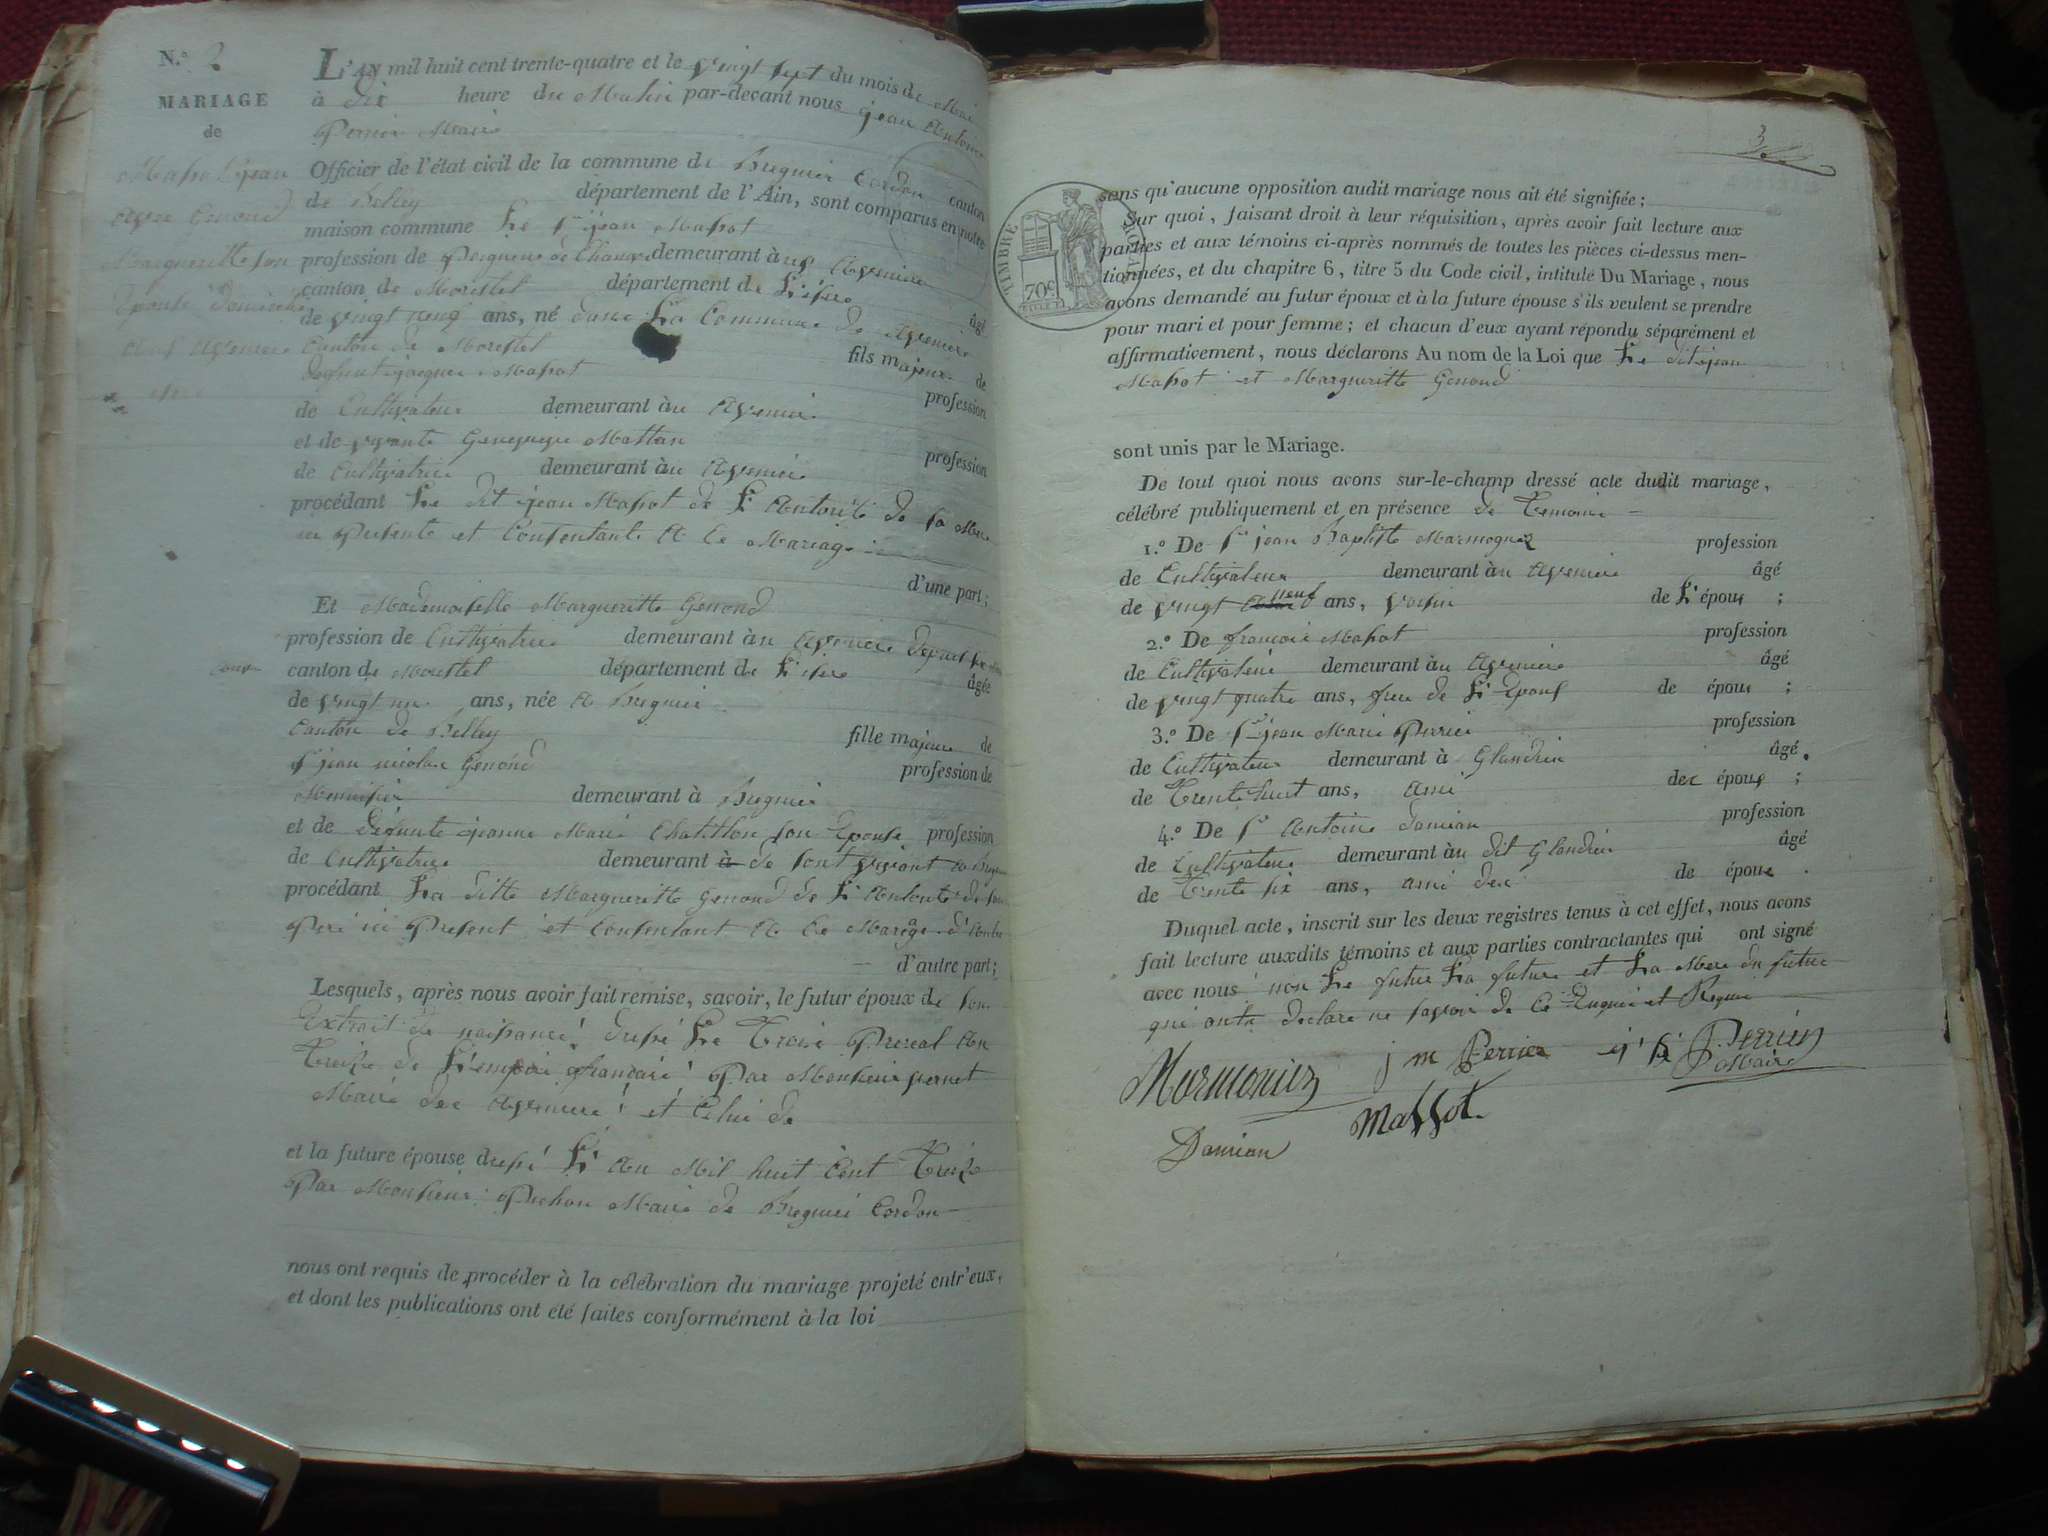 N.º 2
MARIAGE
de
Massot jean
avec Genond
Margueritte son
Epouse
L'AN mil huit cent trente-quatre et le vingt sept du mois de Mai
à dix heure du Matin par-devant nous jean Antoine
Perrier Maire
Officier de l'état civil de la commune de Bregnier Cordon canton
de Belley département de l'Ain, sont comparus en notre
maison commune Le Sr jean Massot
profession de Peigneur de Chanvre demeurant aux Avenieres
canton de Morestel département de L'isere âgé
de vingt neuf ans, né dans La Commune de Aveniere
Canton de Morestel fils majeur de
Defunt jacques Massot profession
de Cultivateur demeurant àux Avenier
et de vivante Genevieve Mattan profession
de Cultivatrice demeurant àux Avenier
procédant Le dit jean Massot de L'Autorité de sa Mere
ici Presente et Consentante A Ce Mariage
d'une part;
Et Mademoiselle Margueritte Genond
profession de Cultivatrice demeurant àux Avenieres Depuis
canton de Morestel département de L'isere âgée
de vingt un ans, née A Bregnier
Canton de Belley fille majeure de
Sr jean nicolas Genond profession de
Menuisier demeurant à Bregnier
et de defunte jeanne Marie Chatillon son Epouse profession
de Cultivatrice demeurant à de sont vivant a
procédant La ditte Margueritte Genond de L'Autorité de son
Pere ici Present et Consentant A Ce Mariage
d'autre part;
Lesquels, après nous avoir fait remise, savoir, le futur époux de son
Extrait de naissance dressé Le Trois Prereal An
Treize de L'empire francais Par Monsieur
Maire des Aveniere et Celui de
et la future épouse dressé L'An Mil huit Cent Treize
Par Monsieur Maire de Bregnier Cordon
nous ont requis de procéder à la célébration du mariage projeté entr'eux,
et dont les publications ont été faites conformément à la loi
3
TIMBRE ROYAL
70c
sans qu'aucune opposition audit mariage nous ait été signifiée;
Sur quoi, faisant droit à leur réquisition, après avoir fait lecture aux
parties et aux témoins ci-après nommés de toutes les pièces ci-dessus men-
tionnées, et du chapitre 6, titre 5 du Code civil, intitulé Du Mariage, nous
avons demandé au futur époux et à la future épouse s'ils veulent se prendre
pour mari et pour femme; et chacun d'eux ayant répondu séparément et
affirmativement, nous déclarons Au nom de la Loi que Le dit jean
Massot et Margueritte Genond
sont unis par le Mariage.
De tout quoi nous avons sur-le-champ dressé acte dudit mariage,
célébré publiquement et en présence de Temoins
1.º De Sr jean Baptiste Marmognez profession
de Cultivateur demeurant àux Avenier âgé
de vingt neuf ans, voisin de L'époux ;
2.º De francois Massot profession
de Cultivateur demeurant àux Avenier âgé
de vingt quatre ans, frere de L'Epous de époux ;
3.º De Sr jean Marie Perrier profession
de Cultivateur demeurant à Glandieu âgé
de Trente huit ans, Ami des époux ;
4.º De Sr Antoine Damian profession
de Cultivateur demeurant àu dit Glandieu âgé
de Trente six ans, ami des de époux .
Duquel acte, inscrit sur les deux registres tenus à cet effet, nous avons
fait lecture auxdits témoins et aux parties contractantes qui ont signé
avec nous non Le futur La future et La Mere du futur
qui onts declare ne savoir de Ce Enquis et Requis
Marmonier j m Perrier j A Perrier
Maire
Massot
Damian